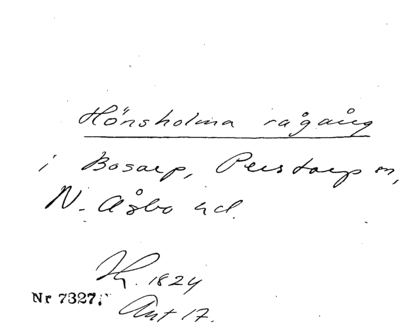 Hönsholma rågång
i Bosarp, Perstorp sn,
N. Åsbo hd.
H. 1824
Nr 7327.
Akt 17.